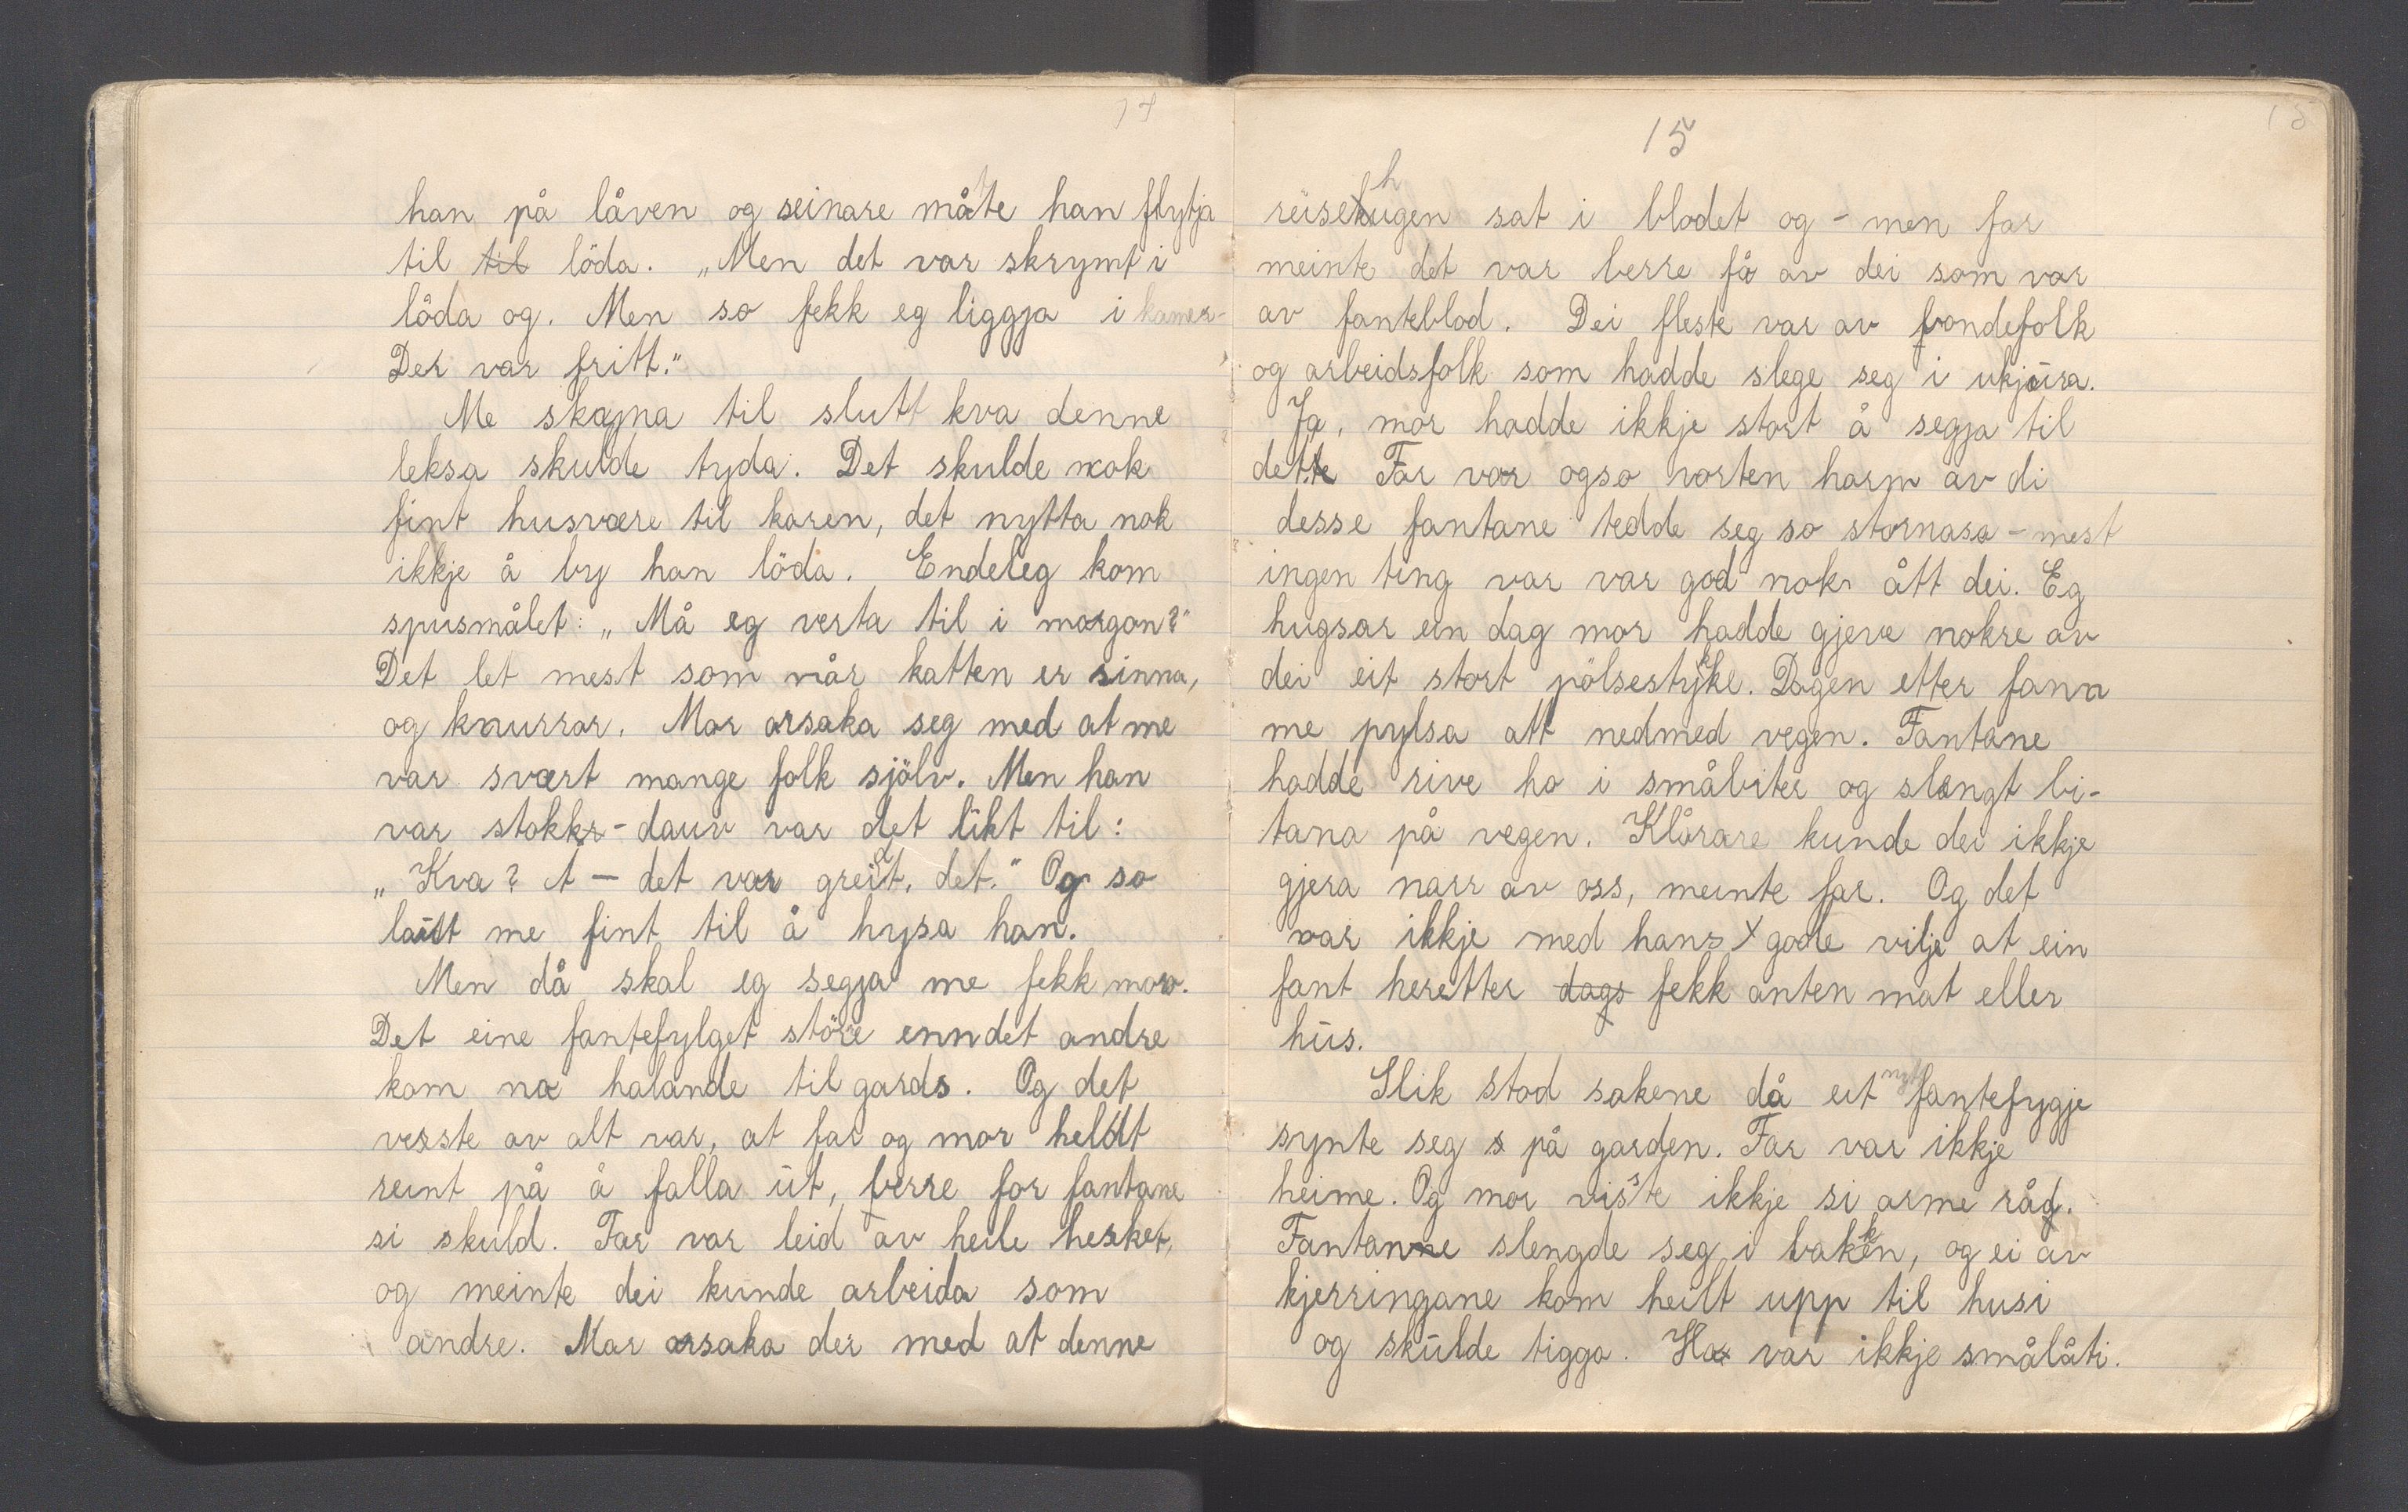 14
han på låven og seinare måtte han flytja
til til löda. „Men det var skrymt i
löda og. Men so fekk eg liggja i kamer-
Der var fritt."
Me skjøna til slutt kva denne
leksa skulde tyda. Det skulde nok
fint husvære til karen, det nytta nok
ikkje å by han löda. Endeleg kom
spusmålet: „Må eg verta til i morgon?"
Det let mest som når katten er sinna,
og knurrar. Mor orsaka seg med at me
var svært mange folk sjölv. Men han
var stokk-dauv var det likt til:
„Kva? A — det var greidt, det." Og so
laut me fint til å hysa han.
Men då skal eg segja me fekk moro.
Det eine fantefylget störe enn det andre
kom no halande til gards. Og det
verste av alt var, at far og mor heldt
reint på å falla ut, berre for fantane
si skuld. Far var leid av heile hesket,
og meinte dei kunde arbeida som
andre. Mor orsaka der med at denne
15
15
reisehugen sat i blodet og - men far
meinte det var berre få av dei som var
av fanteblod. Dei fleste var av bondefolk
og arbeidsfolk som hadde slege seg i ukjura.
Ja, mor hadde ikkje stort å segja til
dette Far var ogso vorten harm av di
desse fantane tedde seg so stornasa - mest
ingen ting var var god nok ått dei. Eg
hugsar ein dag mor hadde gjeve nokre av
dei eit stort pölsestykke. Dagen etter fann
me pylsa att nedmed vegen. Fantane
hadde rive ho i småbiter og slengt bi-
tana på vegen. Klårare kunde dei ikkje
gjera narr av oss, meinte far. Og det
var ikkje med hans gode vilje at ein
fant heretter dags fekk anten mat eller
hus.
Slik stod sakene då eit nytt fantefygje
synte seg s på garden. Far var ikkje
heime. Og mor visste ikkje si arme råd.
Fantane slengde seg i bakken, og ei av
kjerringane kom heilt upp til husi
og skulde tigga. Ho var ikkje smålåti.